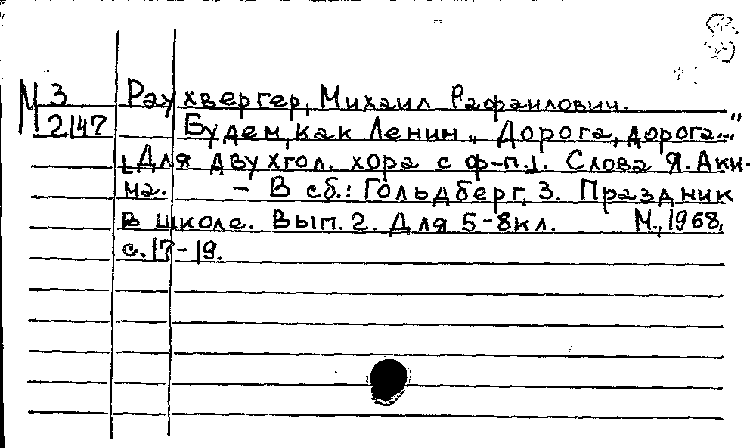 М 3 Раухвергер, Михаил Рафаилович.
2147 Будем, как Ленин. „Дорога, дорога..."
[Для двухгол. хора с ф-п.]. Слова Я. Аки-
ма. – В сб.: Гольдберг, З. Праздник
в школе. Вып. 2. Для 5-8 кл. М., 1968,
с. 17-19.